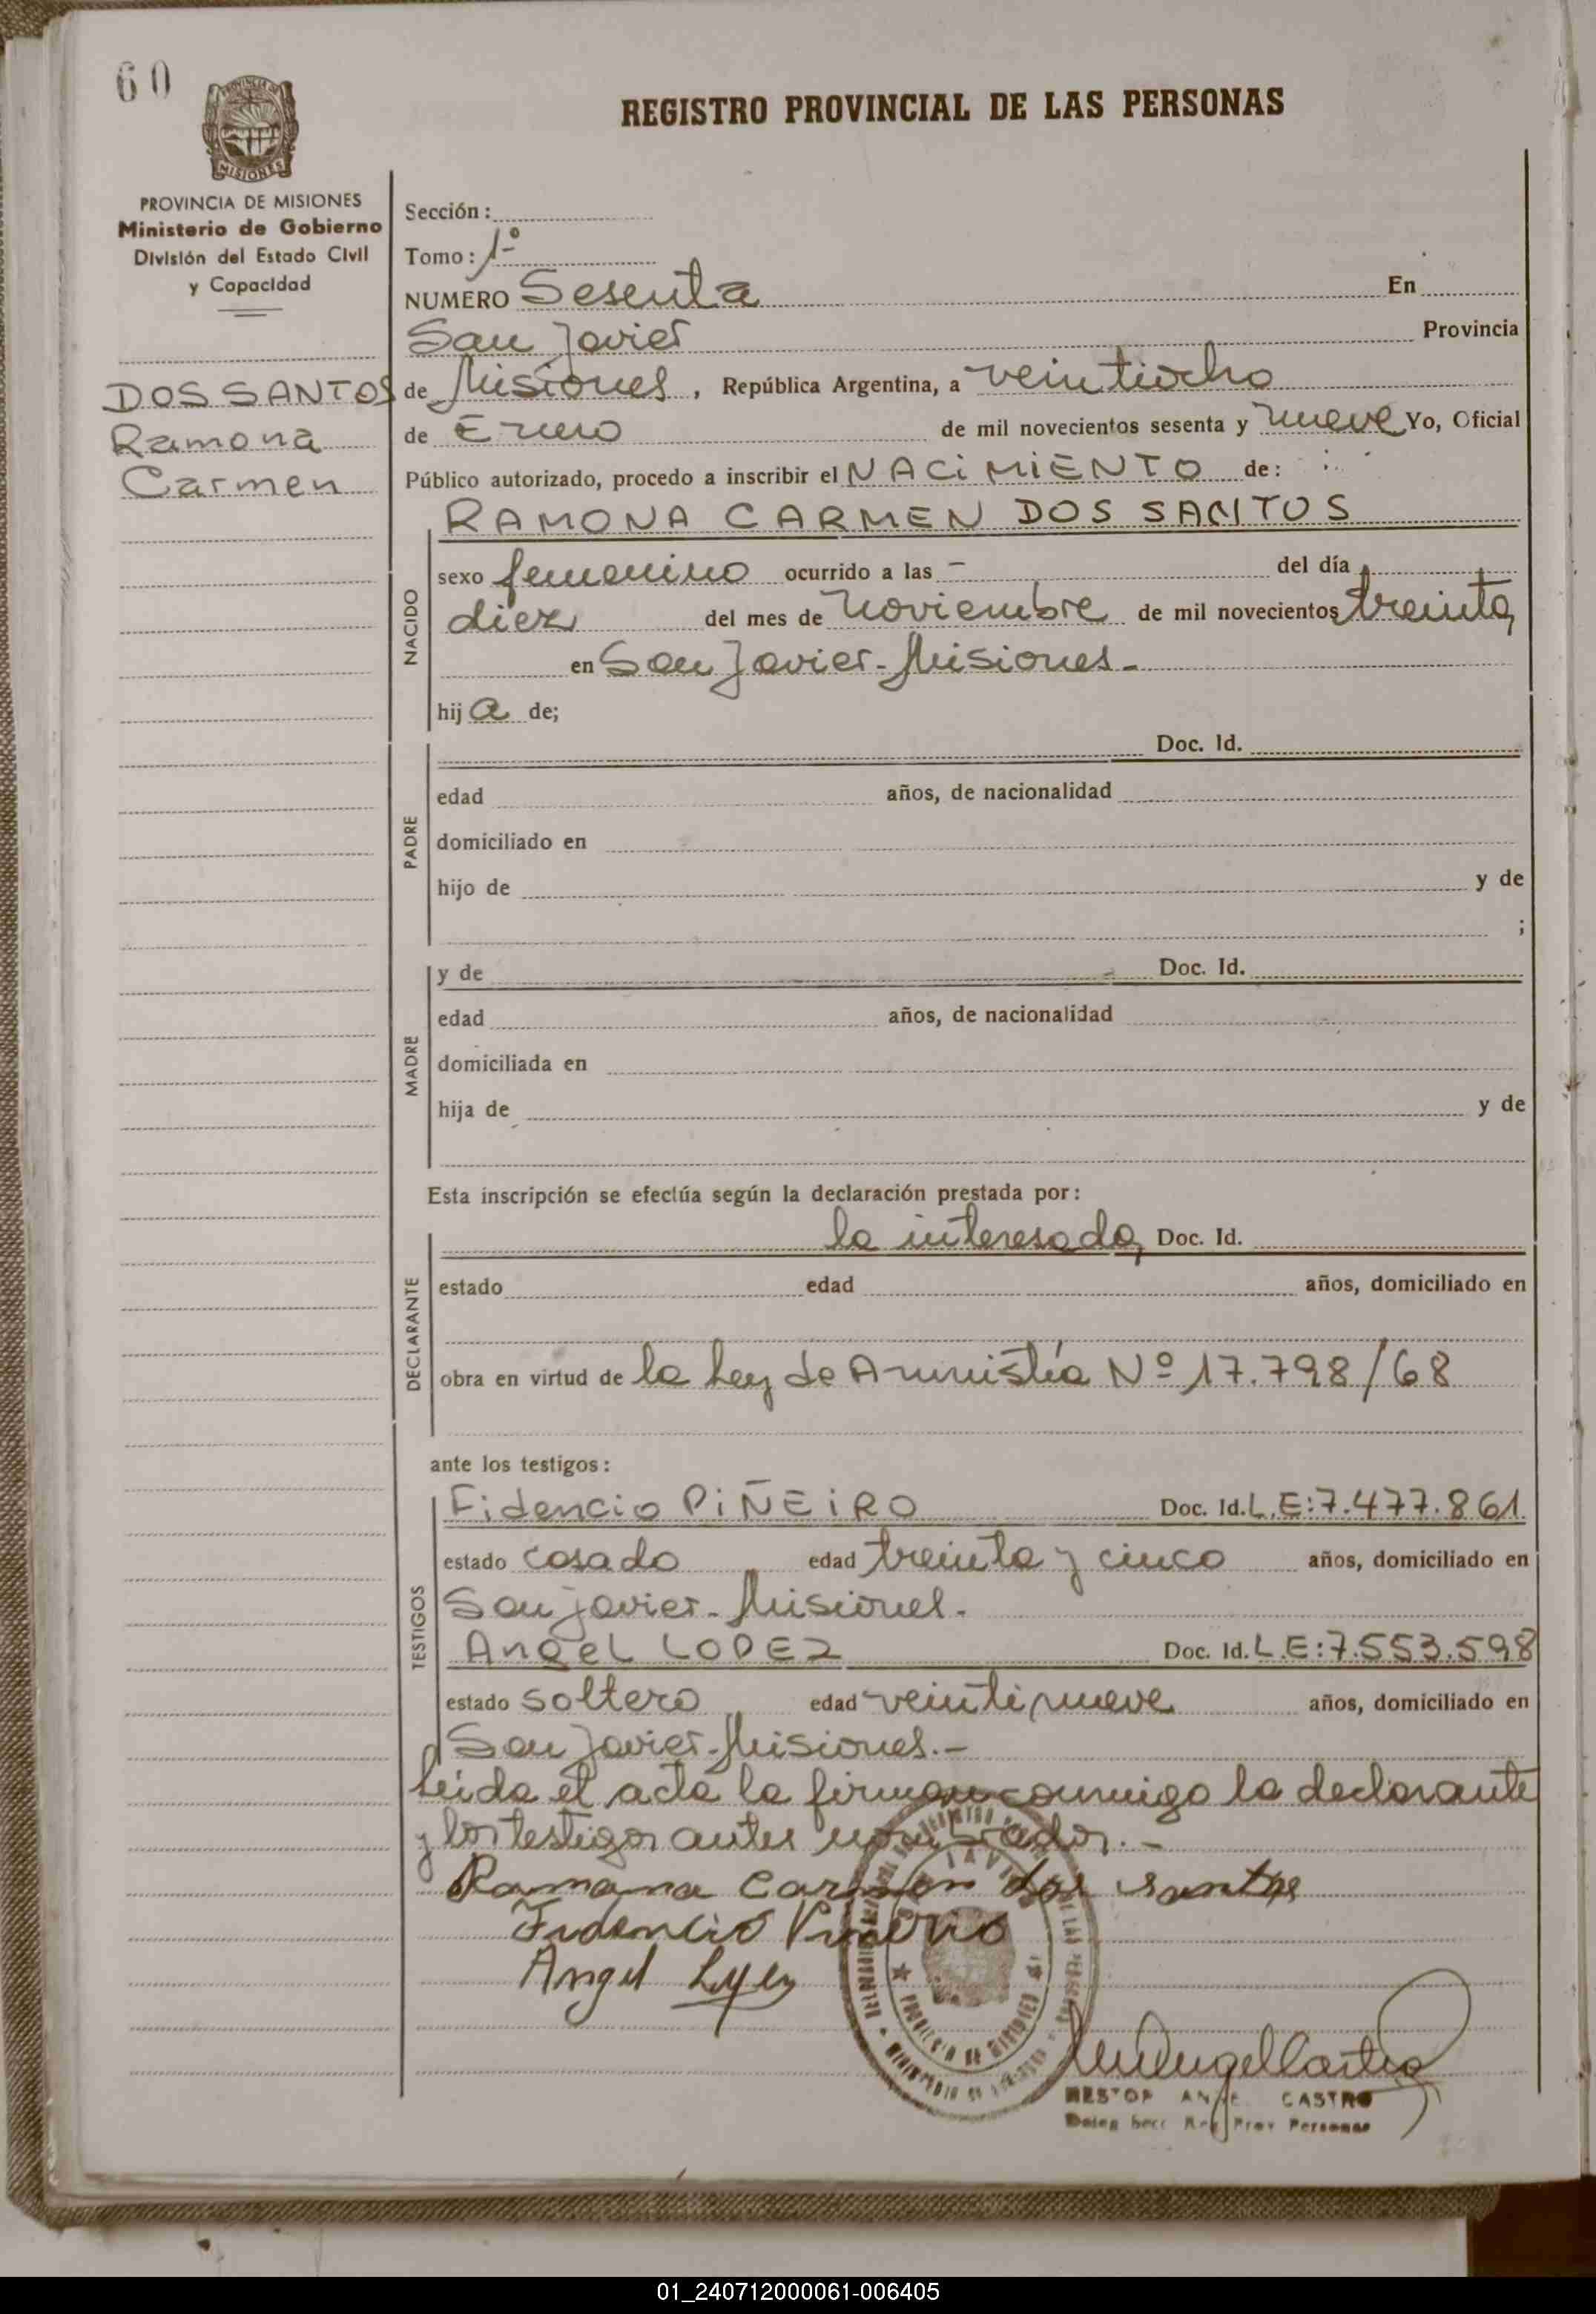 60
REGISTRO PROVINCIAL DE LAS PERSONAS
MISIONES
PROVINCIA DE MISIONES
Ministerio de Gobierno
División del Estado Civil
y Capacidad
DOS SANTOS
Ramona
Carmen
Sección:
Tomo: 1º
NUMERO Sesenta En
San Javier Provincia
de Misiones, República Argentina, a veintiocho
de Enero de mil novecientos sesenta y nueve Yo, Oficial
Público autorizado, procedo a inscribir el NACIMIENTO de:
RAMONA CARMEN DOS SANTOS
NACIDO
sexo femenino ocurrido a las - del día
diez del mes de noviembre de mil novecientos treinta
en San Javier-Misiones-
hija de;
PADRE
Doc. Id.
edad años, de nacionalidad
domiciliado en
hijo de y de
;
MADRE
y de Doc. Id.
edad años, de nacionalidad
domiciliada en
hija de y de
Esta inscripción se efectúa según la declaración prestada por:
DECLARANTE
la interesada, Doc. Id.
estado edad años, domiciliado en
obra en virtud de la Ley de Amnistía Nº 17.798/68
ante los testigos:
TESTIGOS
Fidencio PIÑEIRO Doc. Id. L.E:7.477.861.
estado casado edad treinta y cinco años, domiciliado en
San Javier-Misiones.
ANGEL LOPEZ Doc. Id. L.E:7.553.598
estado soltero edad veintinueve años, domiciliado en
San Javier-Misiones.-
Leída el acta la firman conmigo la declarante
y los testigos antes nombrados.-
Ramona Carmen dos santos
Fidencio
Angel
CASTRO
Prov Personas
01_240712000061-006405